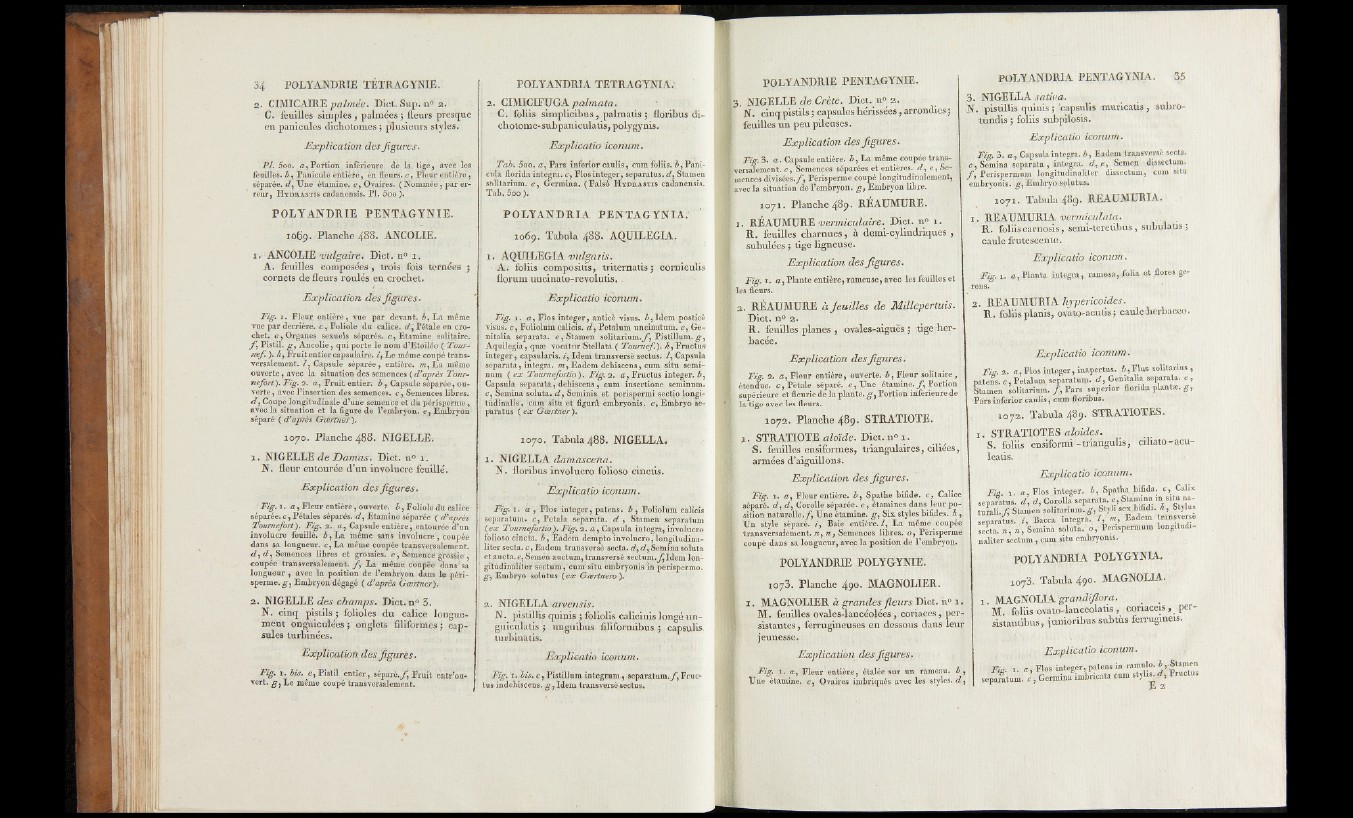 34 POLYANDRIE TÉTRAGYNIE.
2. CIMICAIRE palmée. Dict. Sup. nº 2.
C. feuilles simples, palmées ; fleurs presque
en panicules dichotomes ; plusieurs styles.
Explication des figures.
Pl. 500. a, Portion inférieure de la tige, avec les
feuilles. b, Panicule entière, en fleurs. c, Fleur entière,
séparée. d, Une étamine. e, Ovaires. (Nommée, par er-
reur, HYDRASTIS cadanensis. Pl. 500).
POLYANDRIE PENTAGYNIE.
1069. Planche 488. ANCOLIE.
1. ANCOLIE vulgaire. Dict. nº 1.
A. feuilles composées, trois fois ternées ;
cornets de fleurs roulés en crochet.
Explication des figures.
Fig. 1. Fleur entière, vue par devant. b, La même
vue par derrière. c, Foliole du calice. d, Pétale en cro-
chet. e, Organes sexuels séparés. e, Etamine solitaire.
f, Pistil. g, Ancolie, qui porte le nom d'Etoilée ( Tour-
nef. ). h, Fruit entier capsulaire. i, Le même coupé trans-
versalement. l, Capsule séparée, entière. m, La même
ouverte, avec la situation des semences ( d'après Tour-
nefort). Fig. 2. a, Fruit entier. b, Capsule séparée, ou-
verte, avec l'insertion des semences. c, Semences libres.
d, Coupe longitudinale d'une semence et du périsperme,
avec la situation et la figure de l'embryon. e, Embryon
séparé ( d'après Gærtner ).
1070. Planche 488. NIGELLE.
1. NIGELLE de Damas. Dict. nº 1.
N. fleur entourée d'un involucre feuillé.
Explication des figures.
Fig. 1. a, Fleur entière, ouverte. b, Foliole du calice
séparée. c, Pétales séparés. d, Etamine séparée ( d'après
Tournefort). Fig. 2. a, Capsule entière, entourée d'un
involucre feuillé. b, La même sans involucre, coupée
dans sa longueur. c, La même coupée transversalement.
d, d, Semences libres et grossies. e, Semence grossie,
coupée transversalement. f, La même coupée dans sa
longueur, avec la position de l'embryon dans le péri-
sperme. g, Embryon dégagé ( d'après Gærtner).
2. NIGELLE des champs. Dict. nº 3.
N. cinq pistils ; folioles du calice longue-
ment onguiculées ; onglets filiformes ; cap-
sules turbinées.
Explication des figures.
Fig. 1. bis. e, Pistil entier, séparé. f, Fruit entr'ou-
vert. g, Le même coupé transversalement.
POLYANDRIA TETRAGYNIA.
2. CIMICIFUGA palmata.
C. foliis simplicibus, palmatis ; floribus di-
chotome-subpaniculatis, polygynis.
Explicatio iconum.
Tab. 500. a, Pars inferior caulis, cum foliis. b, Pani-
cula florida integra. c, Flos integer, separatus. d, Stamen
solitarium. e, Germina. (Falsò HYDRASTIS cadanensis.
Tab. 500 ).
POLYANDRIA PENTAGYNIA.
1069. Tabula 488. AQUILEGIA.
1. AQUILEGIA vulgaris.
A. foliis compositis, triternatis ; corniculis
florum uncinato-revolutis.
Explicatio iconum.
Fig. 1. a, Flos integer, anticè visus. b, Idem posticè
visus. c, Foliolum calicis. d, Petalum uncinatum. e, Ge-
nitalia separata. e, Stamen solitarium. f, Pistillum. g,
Aquilegia, quæ vocatur Stellata ( Tournef.). h, Fructus
integer, capsularis. i, Idem transversè sectus. l, Capsula
separata, integra. m, Eadem dehiscens, cum situ semi-
num ( ex Tournefortio ). Fig. 2. a, Fructus integer. b,
Capsula separata, dehiscens, cum insertione seminum.
c, Semina soluta. d, Seminis et perispermi sectio longi-
tudinalis, cum situ et figurâ embryonis. e, Embryo se-
paratus ( ex Gærtner ).
1070. Tabula 488. NIGELLA.
1. NIGELLA damascena.
N. floribus involucro folioso cinctis.
Explicatio iconum.
Fig. 1. a, Flos integer, patens. b, Foliolum calicis
separatum. c, Petala separata. d, Stamen separatum
(ex Tournefortio). Fig. 2. a, Capsula integra, involucro
folioso cincta. b, Eadem dempto involucro, longitudina-
liter secta. c, Eadem transversè secta. d, d, Semina soluta
et aucta. e, Semen auctum, transversè sectum. f, Idem lon-
gitudinaliter sectum, cum situ embryonis in perispermo.
g, Embryo solutus (ex Gærtnero).
2. NIGELLA arvensis.
N. pistillis quinis ; foliolis calicinis longè un-
guiculatis ; unguibus filiformibus ; capsulis
turbinatis.
Explicatio iconum.
Fig. 1. bis. e, Pistillum integrum, separatum. f, Fruc-
tus indehiscens. g, Idem transversè sectus.
POLYANDRIE PENTAGYNIE.
3. NIGELLE de Crète. Dict. nº 2.
N. cinq pistils ; capsules hérissées, arrondies ;
feuilles un peu pileuses.
Explication des figures.
Fig. 3. a. Capsule entière. b, La même coupée trans-
versalement. c, Semences séparées et entières. d, e, Se-
mences divisées. f, Périsperme coupé longitudinalement,
avec la situation de l'embryon. g, Embryon libre.
1071. Planche 489. RÉAUMURE.
1. RÉAUMURE vermiculaire. Dict. nº 1.
R. feuilles charnues, à demi-cylindriques,
subulées ; tige ligneuse.
Explication des figures.
Fig. 1. a, Plante entière, rameuse, avec les feuilles et
les fleurs.
2. RÉAUMURE à feuilles de Millepertuis.
Dict. nº 2.
R. feuilles planes, ovales-aiguës ; tige her-
bacée.
Explication des figures.
Fig. 2. a, Fleur entière, ouverte. b, Fleur solitaire,
étendue. c, Pétale séparé. e, Une étamine. f, Portion
supérieure et fleurie de la plante. g, Portion inférieure de
la tige avec les fleurs.
1072. Planche 489. STRATIOTE.
1. STRATIOTE aloïde. Dict. nº 1.
S. feuilles ensiformes, triangulaires, ciliées,
armées d'aiguillons.
Explication des figures.
Fig. 1. a, Fleur entière. b, Spathe bifide. c, Calice
séparé. d, d, Corolle séparée. e, étamines dans leur po-
sition naturelle. f, Une étamine. g, Six styles bifides. h,
Un style séparé. i, Baie entière. l, La même coupée
transversalement. n, n, Semences libres. o, Périsperme
coupé dans sa longueur, avec la position de l'embryon.
POLYANDRIE POLYGYNIE.
1073. Planche 490. MAGNOLIER.
1. MAGNOLIER à grandes fleurs Dict. nº 1.
M. feuilles ovales-lancéolées, coriaces, per-
sistantes, ferrugineuses en dessous dans leur
jeunesse.
Explication des figures.
Fig. 1. a, Fleur entière, étalée sur un rameau. b,
Une étamine. c, Ovaires imbriqués avec les styles. d,
POLYANDRIA PENTAGYNIA. 35
3. NIGELLA sativa.
N. pistillis quinis ; capsulis muricatis, subro-
tundis ; foliis subpilosis.
Explicatio iconum.
Fig. 3. a, Capsula integra. b, Eadem transversè secta.
c, Semina separata, integra. d, e, Semen dissectum.
f, Perispermum longitudinaliter dissectum, cum situ
embryonis. g, Embryo solutus.
1071. Tabula 489. REAUMURIA.
1. REAUMURIA vermiculata.
R. foliis carnosis, semi-teretibus, subulatis ;
caule frutescente.
Explicatio iconum.
Fig. 1. a, Planta integra, ramosa, folia et flores ge-
rens.
2. REAUMURIA hypericoides.
R. foliis planis, ovato-acutis ; caule herbaceo.
Explicatio iconum.
Fig. 2. a, Flos integer, inapertus. b, Flos solitarius,
patens. c, Petalum separatum. d, Genitalia separata. e,
Stamen solitarium. f, Pars superior florida plantæ. g,
Pars inferior caulis, cum floribus.
1072. Tabula 489. STRATIOTES.
1. STRATIOTES aloides.
S. foliis ensiformi-triangulis, ciliato-acu-
leatis.
Explicatio iconum.
Fig. 1. a, Flos integer. b, Spatha bifida. c, Calix
separatus. d, d, Corolla separata. e, Stamina in situ na-
turali. f, Stamen solitarium. g, Styli sex bifidi. h, Stylus
separatus. i, Bacca integra. l, m, Eadem transversè
secta. n, n, Semina soluta. o, Perispermum longitudi-
naliter sectum, cum situ embryonis.
POLYANDRIA POLYGYNIA.
1073. Tabula 490. MAGNOLIA.
1. MAGNOLIA grandiflora.
M. foliis ovato-lanceolatis, coriaceis, per-
sistantibus, junioribus subtùs ferrugineis.
Explicatio iconum.
Fig. 1. a, Flos integer, patens in ramulo. b, Stamen
separatum. c, Germina imbricata cum stylis. d, Fructus
E 2